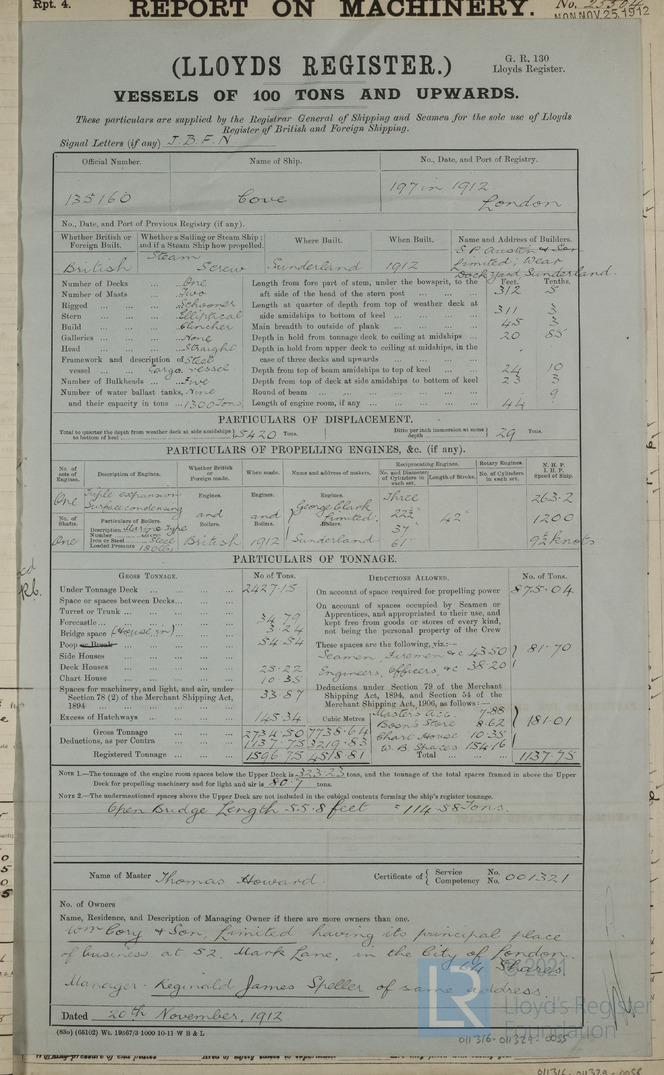 Rpt. 4. REPORT ON MACHINERY. No.
MON NOV 25, 1912
(LLOYDS REGISTER.)
G. R. 130
Lloyds Register.
VESSELS OF 100 TONS AND UPWARDS.
These particulars are supplied by the Registrar General of Shipping and Seamen for the sole use of Lloyds
Register of British and Foreign Shipping.
Signal Letters (if any) J.B.F.N
Official Number. Name of Ship. No., Date, and Port of Registry.
135160 Cove 197 in 1912
London
No., Date, and Port of Previous Registry (if any).
Whether British or Foreign Built. Whether a Sailing or Steam Ship; and if a Steam Ship how propelled. Where Built. When Built. Name and Address of Builders.
British Steam Screw Sunderland 1912 S.P. Austin & Son Limited, Wear Dock Yard Sunderland.
Feet. Tenths.
Number of Decks ... One
Number of Masts ... Two
Rigged ... Schooner
Stern ... Elliptical
Build ... Clincher
Galleries ... None
Head ... Straight
Framework and description of vessel ... Steel Cargo vessel
Number of Bulkheads ... Five
Number of water ballast tanks, Nine
and their capacity in tons ... 1300 Tons
Length from fore part of stem, under the bowsprit, to the
aft side of the head of the stern post 312 5
Length at quarter of depth from top of weather deck at
side amidships to bottom of keel 311 3
Main breadth to outside of plank 45 3
Depth in hold from tonnage deck to ceiling at midships 20 85
Depth in hold from upper deck to ceiling at midships, in the
case of three decks and upwards
Depth from top of beam amidships to top of keel 24 10
Depth from top of deck at side amidships to bottom of keel 23 3
Round of beam 9
Length of engine room, if any 44
PARTICULARS OF DISPLACEMENT.
Total to quarter the depth from weather deck at side amidships to bottom of keel 5420 Tons. Ditto per inch immersion at same depth 29 Tons.
PARTICULARS OF PROPELLING ENGINES, &c. (if any).
No. of sets of Engines. Description of Engines. Whether British or Foreign made. When made. Name and address of makers. Reciprocating Engines. Rotary Engines. N. H. P.
No. and Diameter of Cylinders in each set. Length of Stroke. No. of Cylinders in each set. I. H. P. Speed of Ship.
One Triple expansion Surface condensing Engines. Engines. Engines. George Clark Limited. Three 22½" 37" 61" 42" 263.2
No. of Shafts. Particulars of Boilers. and and 1200
One Description Marine Type Boilers. Boilers. Boilers.
Number
Iron or Steel Steel
Loaded Pressure 180 lbs British 1912 Sunderland 9½ knots
PARTICULARS OF TONNAGE.
GROSS TONNAGE. No of Tons.
Under Tonnage Deck 2427.15
Space or spaces between Decks
Turret or Trunk
Forecastle 34.79
Bridge space (House in) 3.24
Poop or Break 54.54
Side Houses
Deck Houses 25.22
Chart House 10.35
Spaces for machinery, and light, and air, under
Section 78 (2) of the Merchant Shipping Act,
1894 33.87
Excess of Hatchways 145.34
Cubic Metres
Gross Tonnage 2734.50 7738.64
Deductions, as per Contra 1137.75 3219.83
Registered Tonnage 1596.75 4518.81
DEDUCTIONS ALLOWED. No. of Tons.
On account of space required for propelling power 875.04
On account of spaces occupied by Seamen or
Apprentices, and appropriated to their use, and
kept free from goods or stores of every kind,
not being the personal property of the Crew
These spaces are the following, viz.:—
Seamen, Firemen &c 43.50
Engineers, Officers, &c 38.20
81.70
Deductions under Section 79 of the Merchant
Shipping Act, 1894, and Section 54 of the
Merchant Shipping Act, 1906, as follows:—
Master's acc. 7.88
Bosn's Store 8.62
Chart House 10.35
W. B. Spaces 154.16
181.01
Total 1137.75
NOTE 1.—The tonnage of the engine room spaces below the Upper Deck is 323.23 tons, and the tonnage of the total spaces framed in above the Upper
Deck for propelling machinery and for light and air is 80.7 tons.
NOTE 2.—The undermentioned spaces above the Upper Deck are not included in the cubical contents forming the ship's register tonnage.
Open Bridge Length 55.8 feet = 114.58 Tons.
Name of Master Thomas Howard. Certificate of Service No.
Competency No. 001321
No. of Owners
Name, Residence, and Description of Managing Owner if there are more owners than one.
Wm Cory & Son, Limited having its principal place
of business at 52, Mark Lane, in the City of London.
64 Shares
Manager - Reginald James Speller of same address
Dated 20th November, 1912
(83o) (65102) Wt. 19567/3 1000 10-11 W B & L
© 2021
LR Lloyd's Register
Foundation
011316-011329-0058
011316-011329-0058